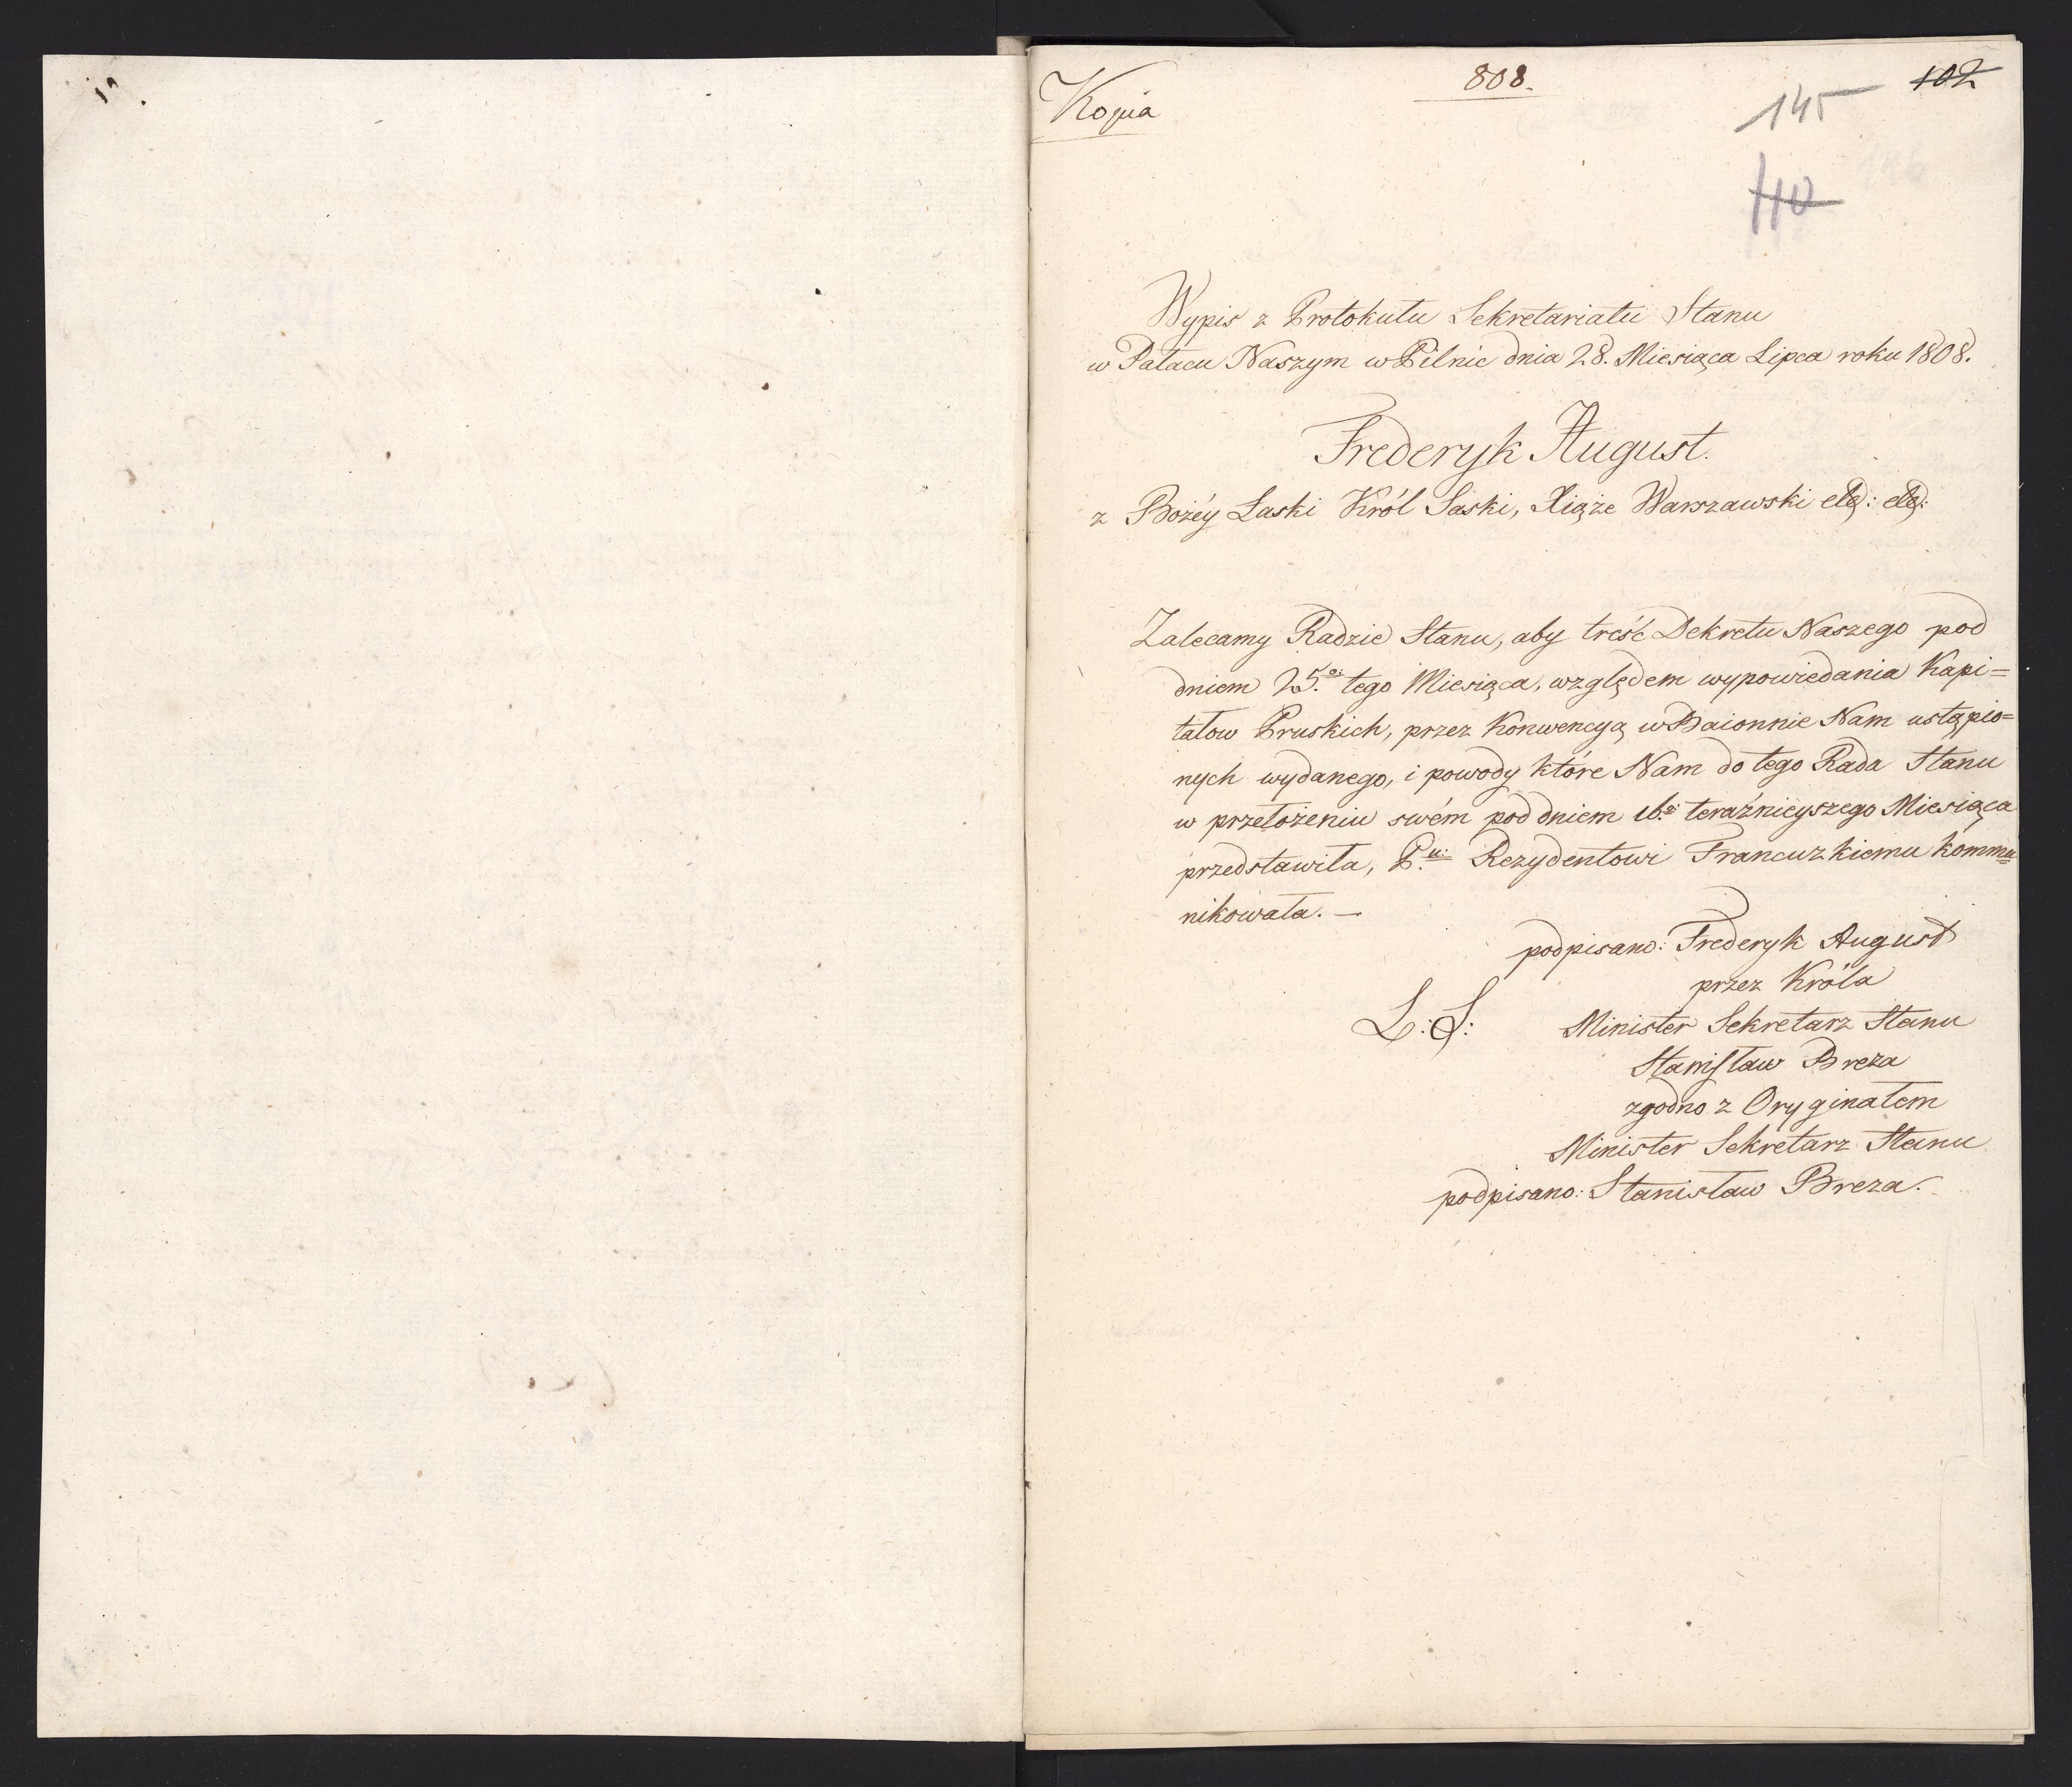 Kopia
808.
102
145
110
Wypis z Protokułu Sekretariatu Stanu
w Pałacu Naszym w Pilnic dnia 28. Miesiąca Lipca roku 1808.
Frederyk August.
z Bożéy Łaski Król Saski, Xiąże Warszawski etc: etc:
Zalecamy Radzie Stanu, aby treść Dekretu Naszego pod
dniem 25.o: tego Miesiąca, względem wypowiedania Kapi=
tałow Pruskich, przez Konwencyą w Baionnie Nam ustąpio=
nych wydanego, i powody które Nam do tego Rada Stanu
w przełożeniu swém pod dniem 16.o: teraźnieyszego Miesiąca
przedstawiła, P.u: Rezydentowi Francuzkiemu kommu=
nikowała. —
podpisano: Frederyk August
przez Króla
L: S: Minister Sekretarz Stanu
Stanisław Breza
zgodno z Oryginałem
Minister Sekretarz Stanu
podpisano: Stanisław Breza.